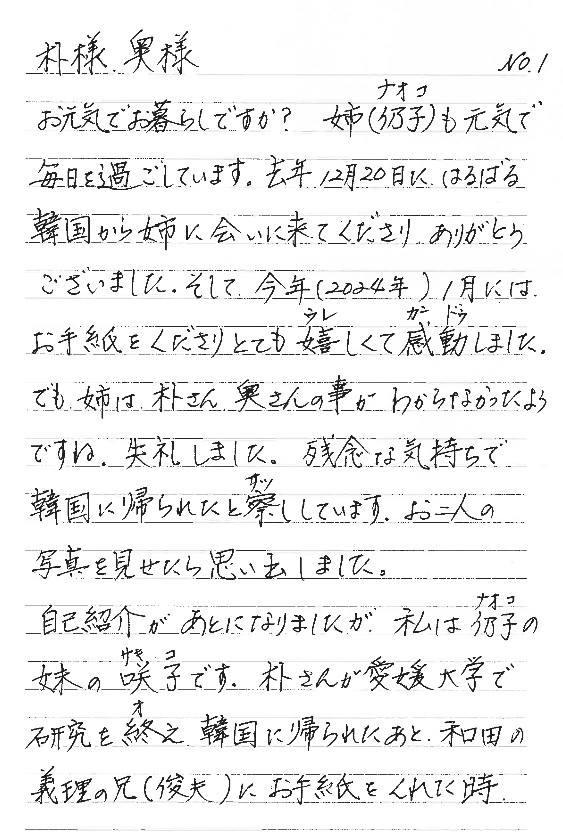 朴様、奥様 NO.1
お元気でお暮らしですか? 姉(仍子)も元気で
ナオコ
毎日を過ごしています。去年12月20日に はるばる
韓国から姉に会いに来てくださり ありがとう
ございました。そして 今年(2024年 )1月には
お手紙をくださりとても 嬉しくて 感動しました。
ウレ カン ドウ
でも 姉は 朴さん 奥さんの事が わからなかったよう
ですね. 失礼しました。 残念な気持ちで
韓国に帰られたと察ししています. お二人の
サッ
写真を見せたら思い出しました。
自己紹介が あとになりましたが 私は 仍子の
ナオコ
妹の 咲子です. 朴さんが愛媛大学で
サキ コ
研究を終え 韓国に帰られたあと、和田の
オ
義理の兄(俊夫)に お手紙をくれてく時